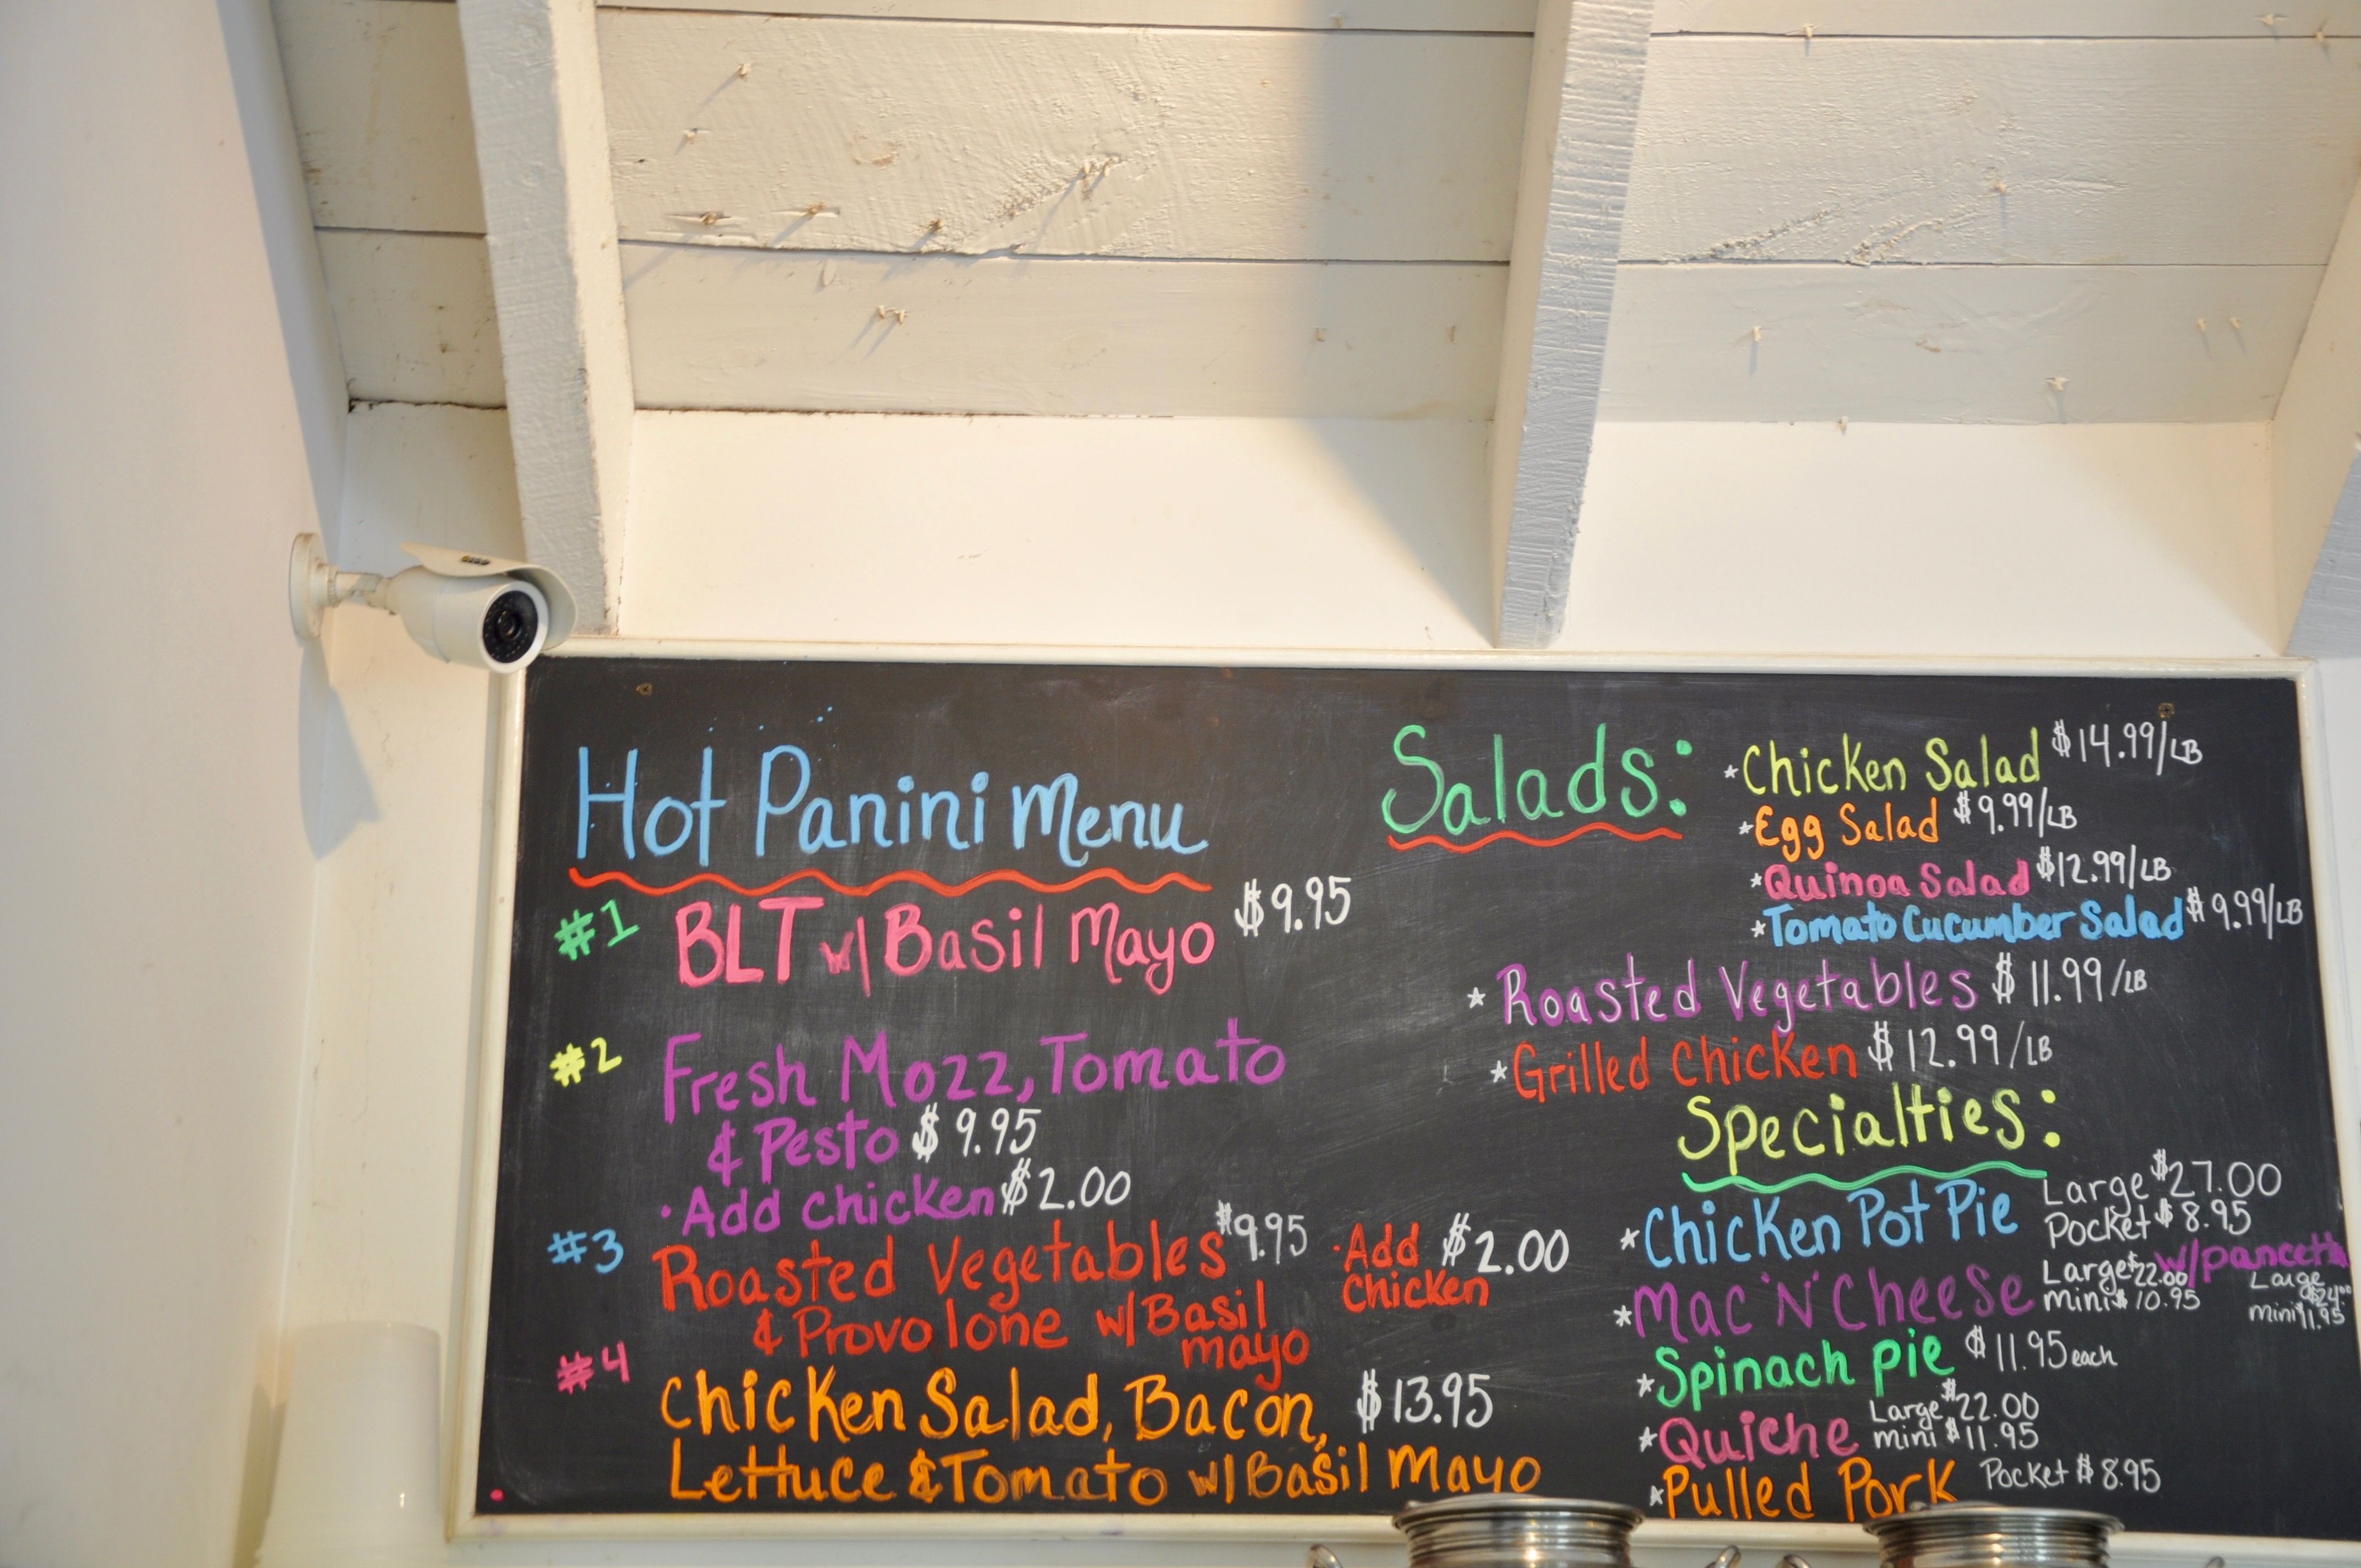 Hot Panini Menu
#1 BLT w/ Basil Mayo $9.95
#2 Fresh Mozz, Tomato
& Pesto $9.95
• Add chicken $2.00
#3 Roasted Vegetables $9.95 • Add Chicken $2.00
& Provolone w/ Basil
mayo
#4 Chicken Salad, Bacon, $13.95
Lettuce & Tomato w/ Basil Mayo
Salads:
* Chicken Salad $14.99/LB
* Egg Salad $9.99/LB
* Quinoa Salad $12.99/LB
* Tomato Cucumber Salad $9.99/LB
* Roasted Vegetables $11.99/LB
* Grilled Chicken $12.99/LB
Specialties:
* Chicken Pot Pie Large $27.00
Pocket $8.95
* Mac 'N' Cheese Large $22.00 w/ pancetta Large $24.00
mini $10.95 mini $11.95
* Spinach pie $11.95 each
* Quiche Large $22.00
mini $11.95
* Pulled Pork Pocket $8.95